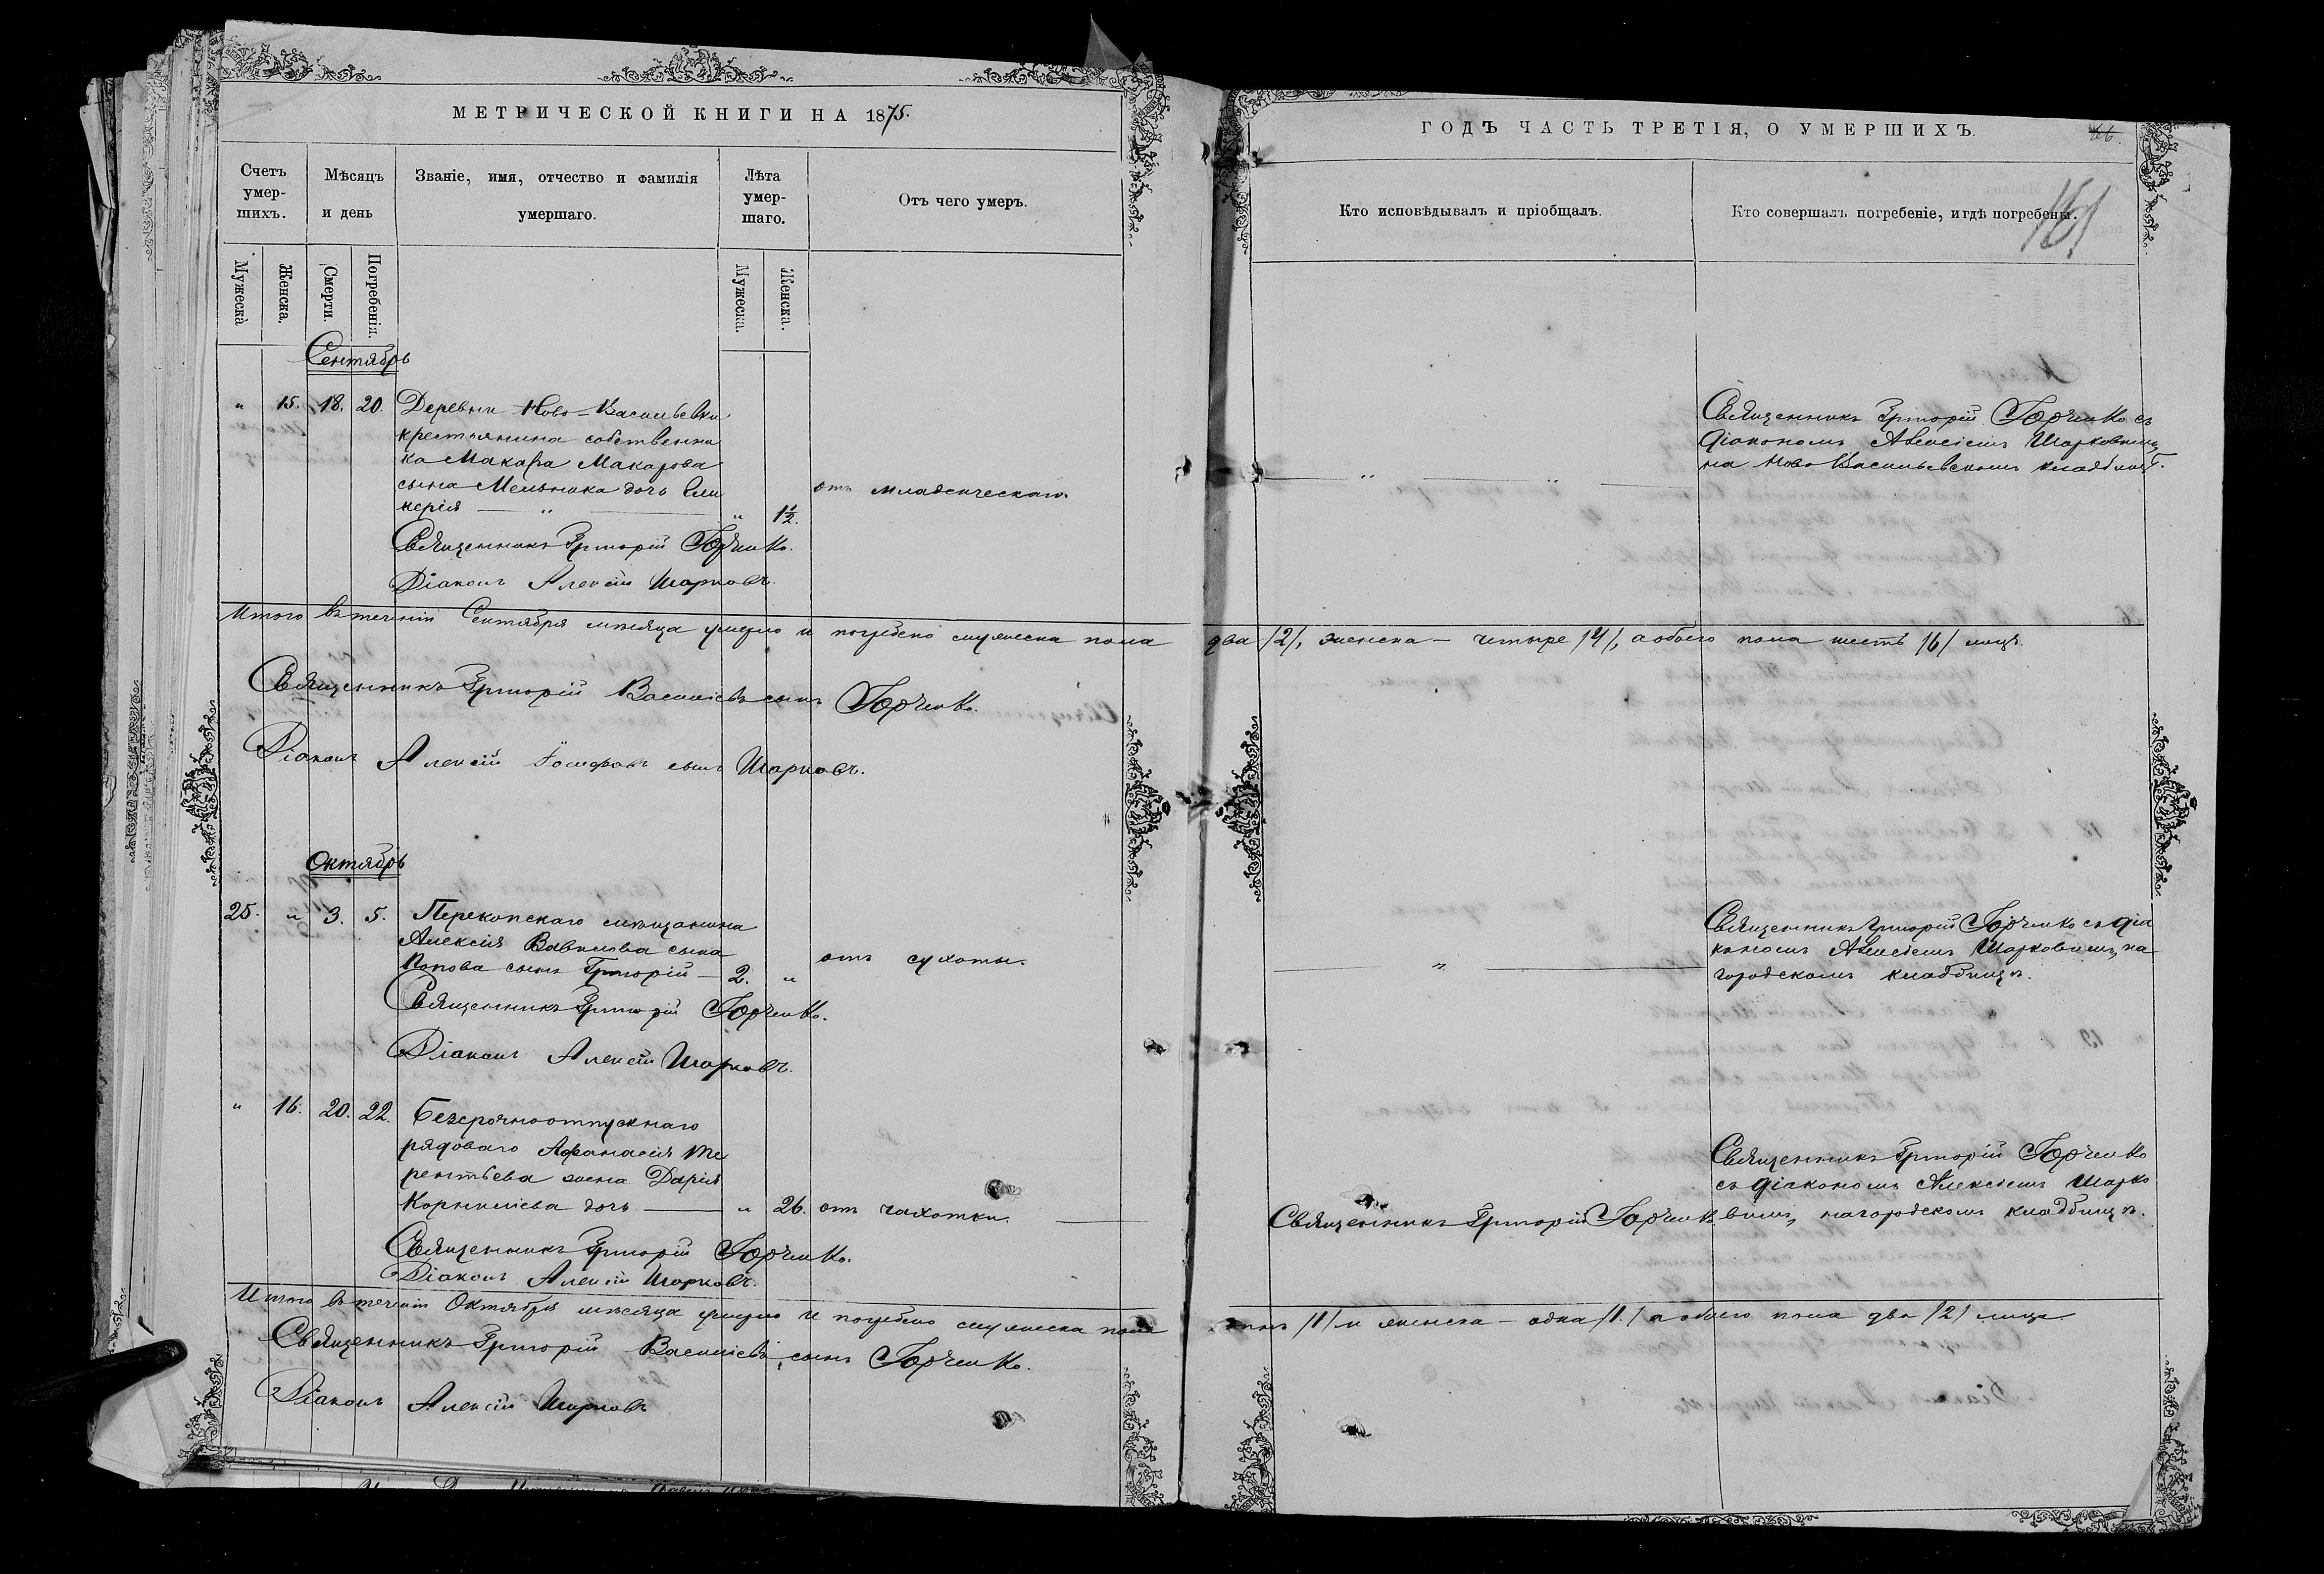 МЕТРИЧЕСКОЙ КНИГИ НА 1875.
Счетъ умер-шихъ.
Мѣсяцъ и день
Званіе, имя, отчество и фамилія умершаго.
Лѣта умер-шаго.
Отъ чего умеръ.
Мужеска
Женска.
Смерти.
Погребенія.
Мужеска.
Женска.
Сентябрь
" 15. 18. 20. Деревни Ново-Васильевки
крестьянина собственни
ка Макара Макарова
сына Мельника дочь Гли
керія — " — " 1½. отъ младенческаго.
Священникъ Григорій Юрченко.
Діаконъ Алексій Шарковъ.
Итого въ теченіи Сентября мѣсяца умерло и погребено мужеска пола
Священникъ Григорій Василіевъ сынъ Юрченко.
Діаконъ Алексій Іосифовъ сынъ Шарковъ.
Октябрь
25. " 3. 5. Перекопскаго мѣщанина
Алексія Вавилова сына
Попова сынъ Григорій — 2. " отъ сухоты.
Священникъ Григорій Юрченко.
Діаконъ Алексій Шарковъ.
" 16. 20. 22. Безсрочноотпускнаго
рядоваго Афанасія Те
рентьева жена Дарія
Корниліева дочь — " 26. отъ чахотки.
Священникъ Григорій Юрченко.
Діаконъ Алексій Шарковъ.
Итого въ теченіи Октября мѣсяца умерло и погребено мужеска пола
Священникъ Григорій Василіевъ сынъ Юрченко.
Діаконъ Алексій Шарковъ
ГОДЪ ЧАСТЬ ТРЕТІЯ, О УМЕРШИХЪ.
66.
Кто исповѣдывалъ и пріобщалъ.
Кто совершалъ погребеніе, и гдѣ погребены.
Священникъ Григорій Юрченко съ
діакономъ Алексіемъ Шарковымъ,
на Ново Васильевскомъ кладбищѣ.
два /2/, женска — четыре /4/, а обоего пола шесть /6/ лицъ.
Священникъ Григорій Юрченко съ діа
кономъ Алексіемъ Шарковымъ, на
городскомъ кладбищѣ.
Священникъ Григорій Юрченко
съ діакономъ Алексіемъ Шарко
вымъ, на городскомъ кладбищѣ.
Священникъ Григорій Юрченко
одинъ /1/ и женска — одна /1./ а обоего пола два /2/ лица.